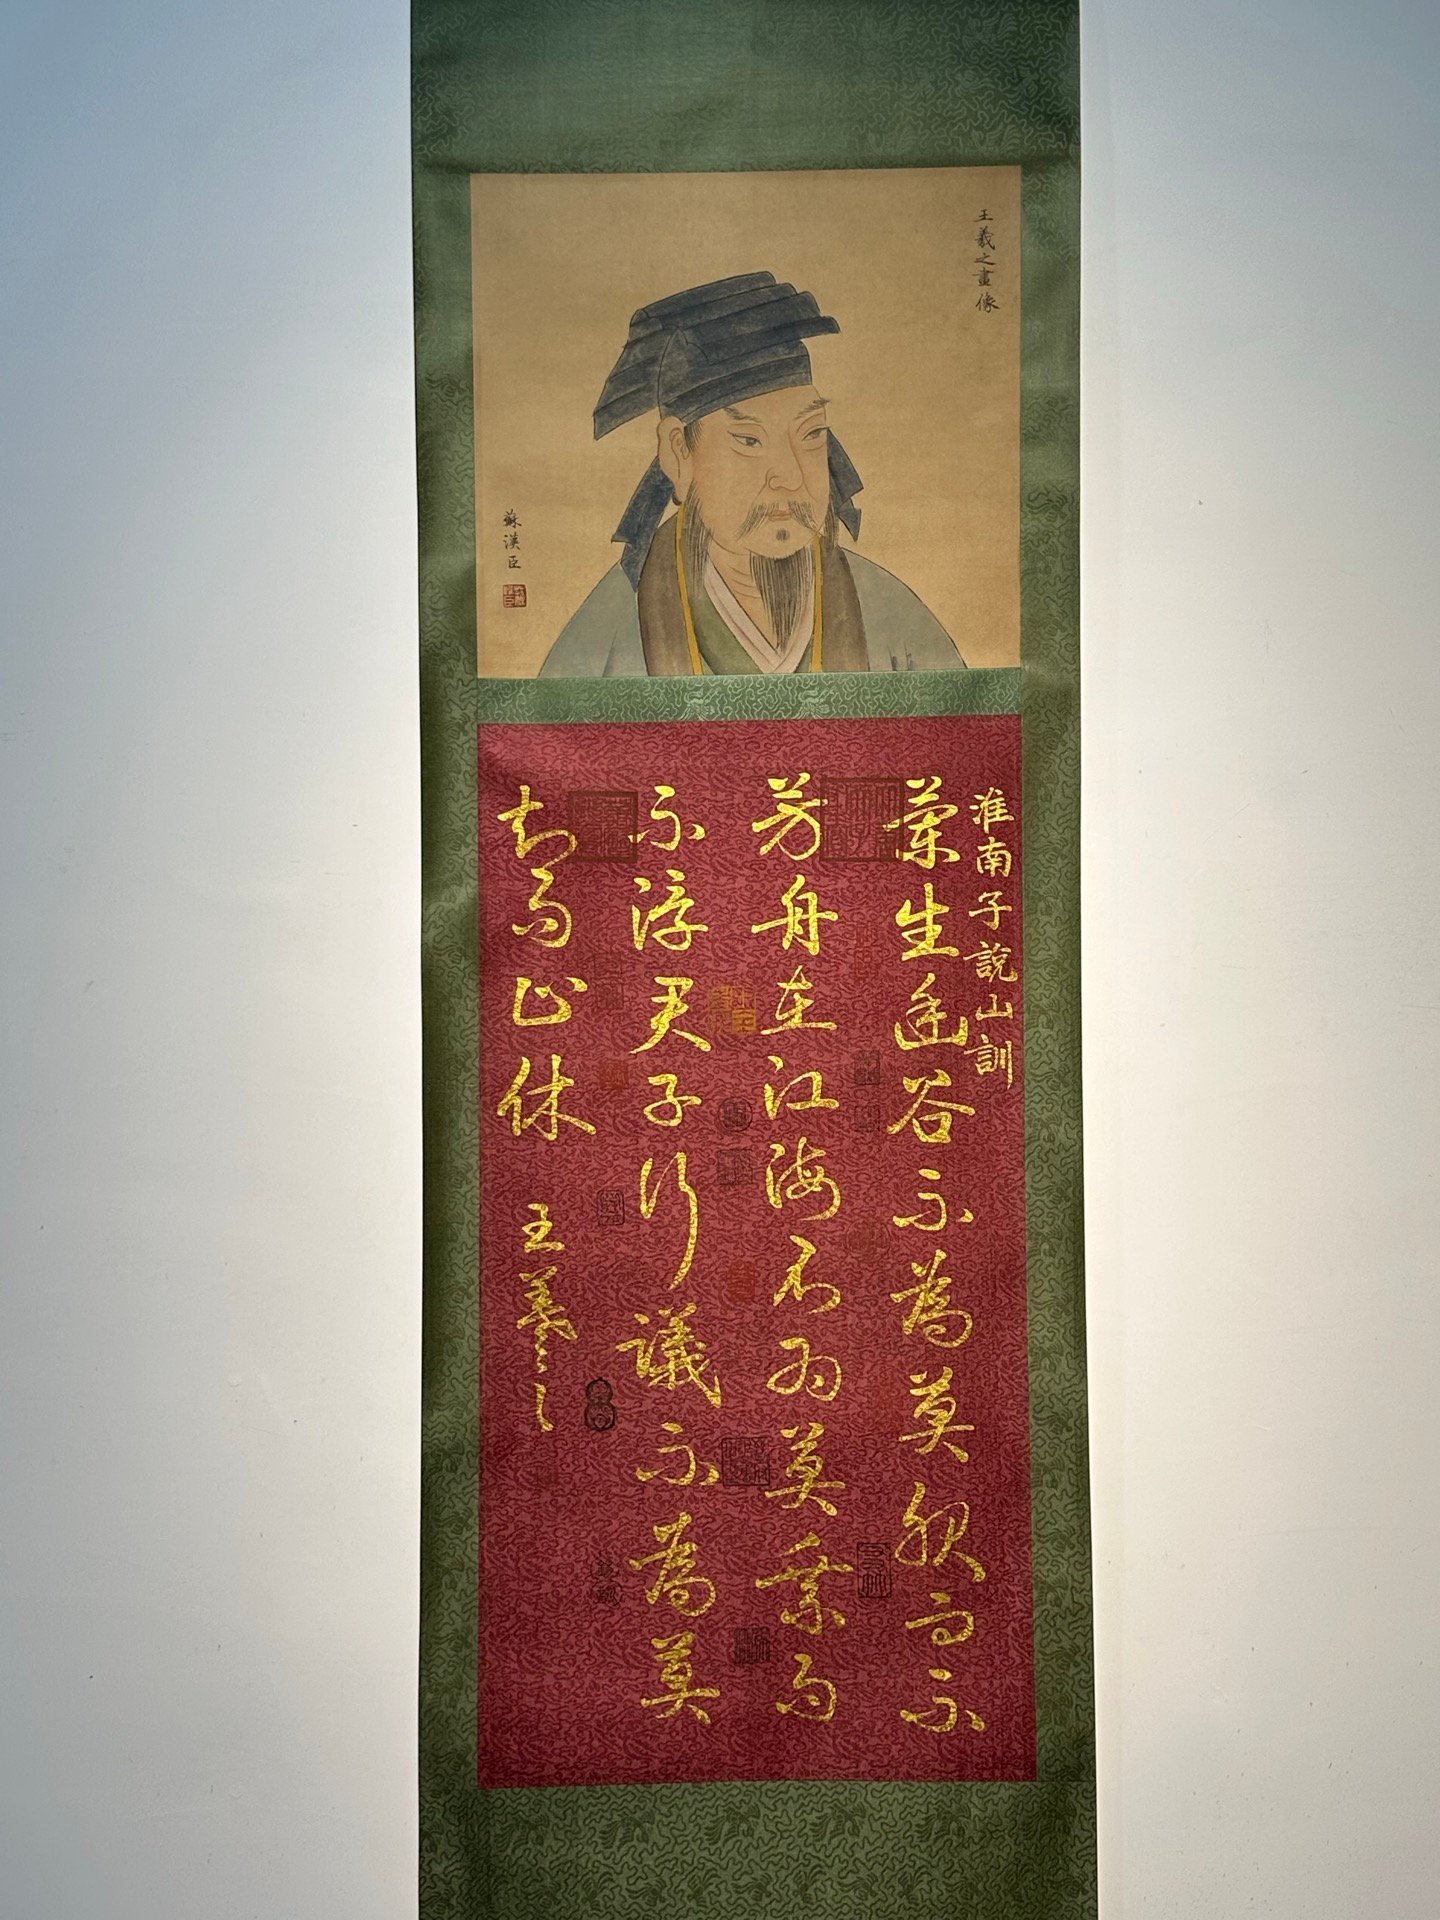 王羲之畫像
蘇漢臣
淮南子說山訓
蘭生幽谷不為莫服而不
芳舟在江海不為莫乘而
不浮君子行議不為莫
知而止休
王羲之